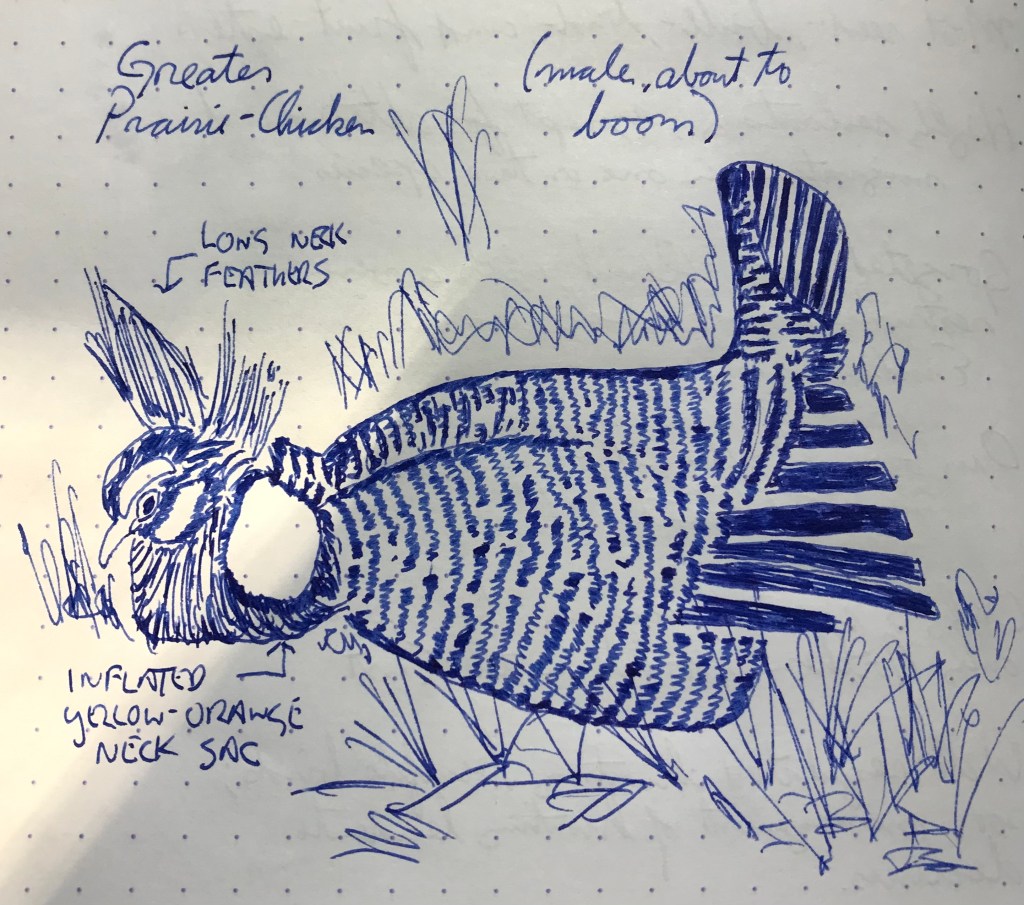 Greater
Prairie-Chicken
(male, about to
boom)
LONG NECK
FEATHERS
INFLATED
YELLOW-ORANGE
NECK SAC